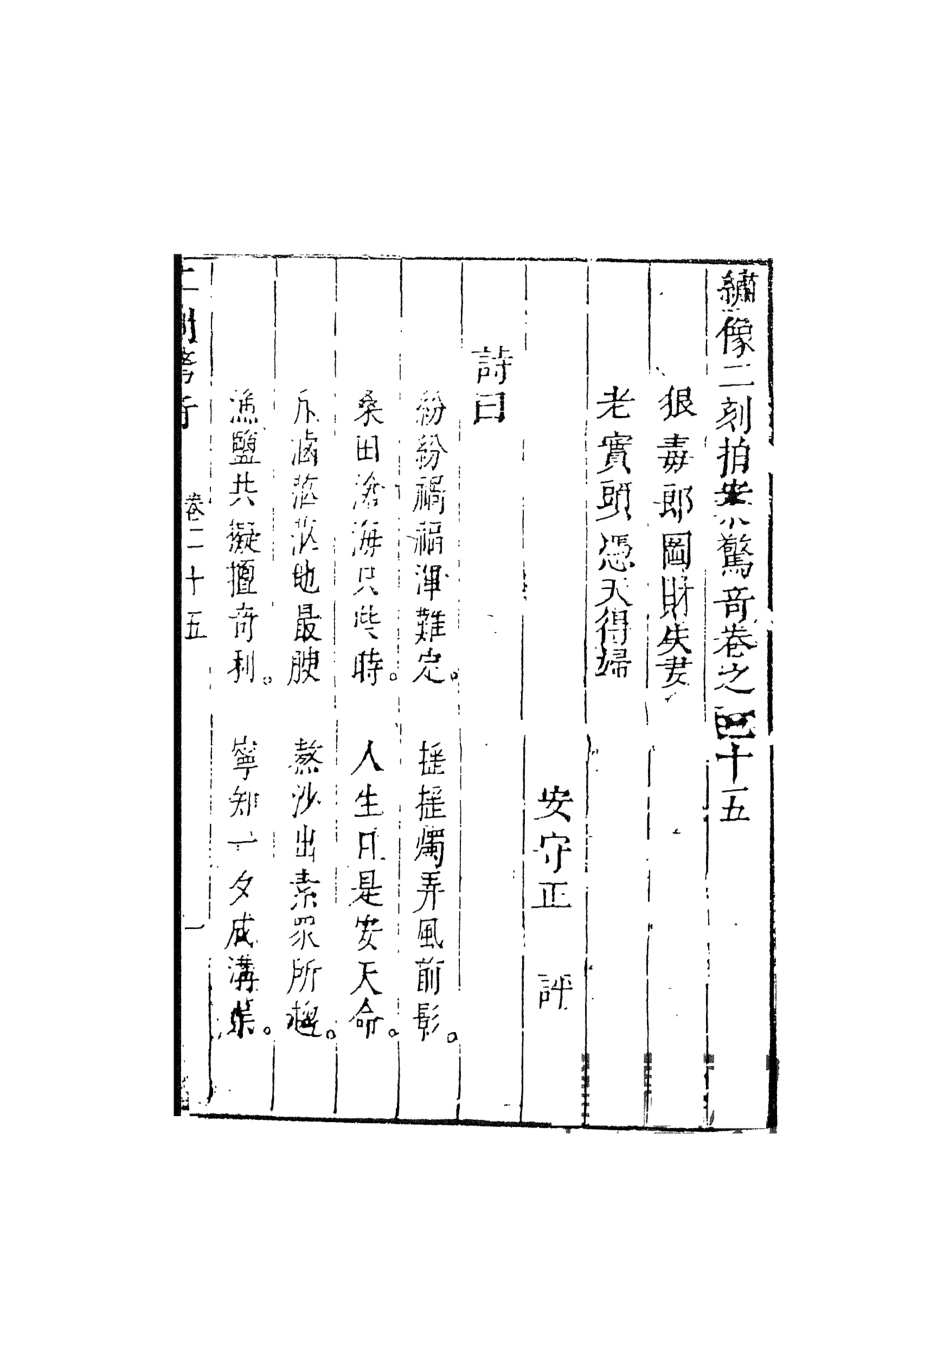 繡像二刻拍案驚奇卷之二十五
狠毒郎圖財失妻
老實頭憑天得婦
安守正 評
詩曰
紛紛禍福渾難定。 摇摇燭弄風前影。
桑田滄海只些時。 人生且是安天命。
斥滷茫茫地最腴 熬沙出素眾所趨。
漁鹽共擬擅奇利。 寧知一夕成溝渠。
二刻驚奇 卷二十五 一